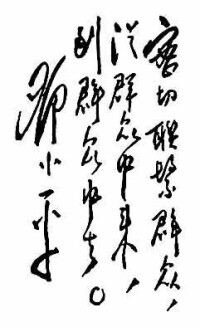 密切联系群众，
从群众中来，
到群众中去。
邓小平